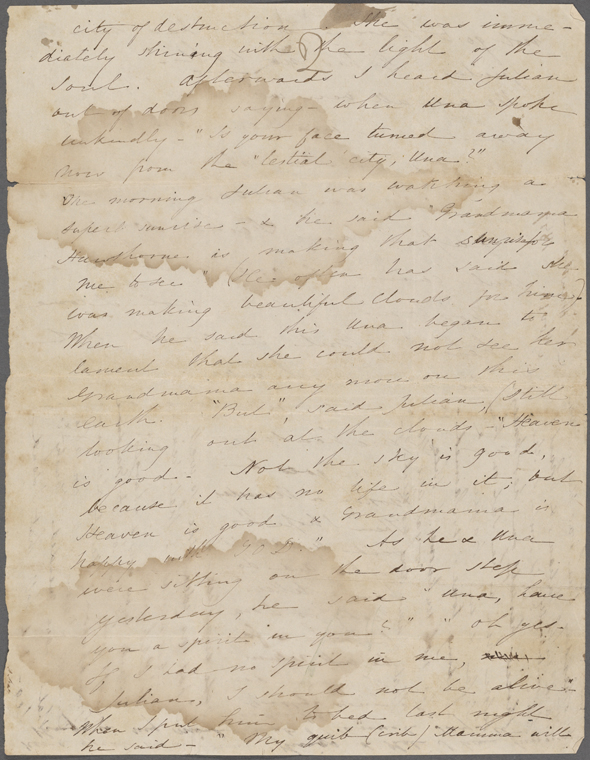 city of destruction. She was imme-
diately shining with the light of the
soul. Afterwards I heard Julian
out of doors saying - when Una spoke
unkindly - "Is your face turned away
now from the 'lestial city, Una?"
One morning Julian was watching a
superb sunrise - & he said "Grandmama
Hawthorne is making that sunrise for
me to see" (He often has said she
was making beautiful clouds for him)
When he said this Una began to
lament that she could not see her
Grandmama any more on this
earth. "But" said Julian (still
looking out at the clouds - "Heaven
is good. Not the sky is good,
because it has no life in it; but
Heaven is good & Grandmama is
happy with God." As he & Una
were sitting on the door step
yesterday, he said "Una, have
you a spirit in you?" "Oh yes.
If I had no spirit in me,
Julian, I should not be alive."
When I put him to bed last night
he said - "My quib (crib) Mamma will